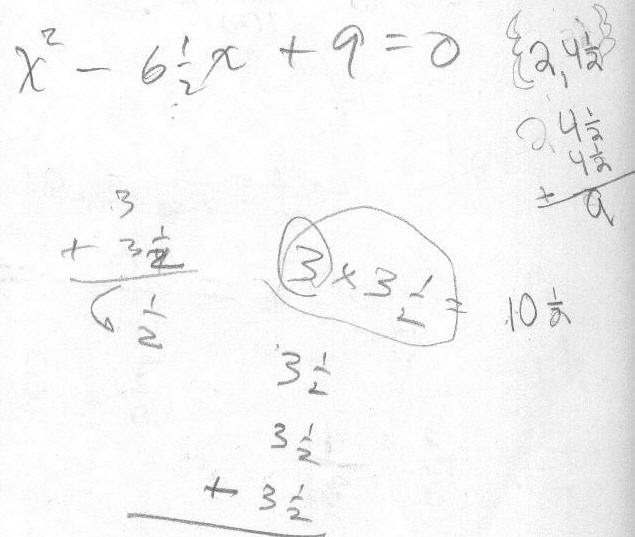 x² - 6 1/2 x + 9 = 0
{2, 4 1/2}
2 4 1/2
4 1/2
+ 9
3
+ 3 1/2
6 1/2
3 x 3 1/2 = 10 1/2
3 1/2
3 1/2
+ 3 1/2